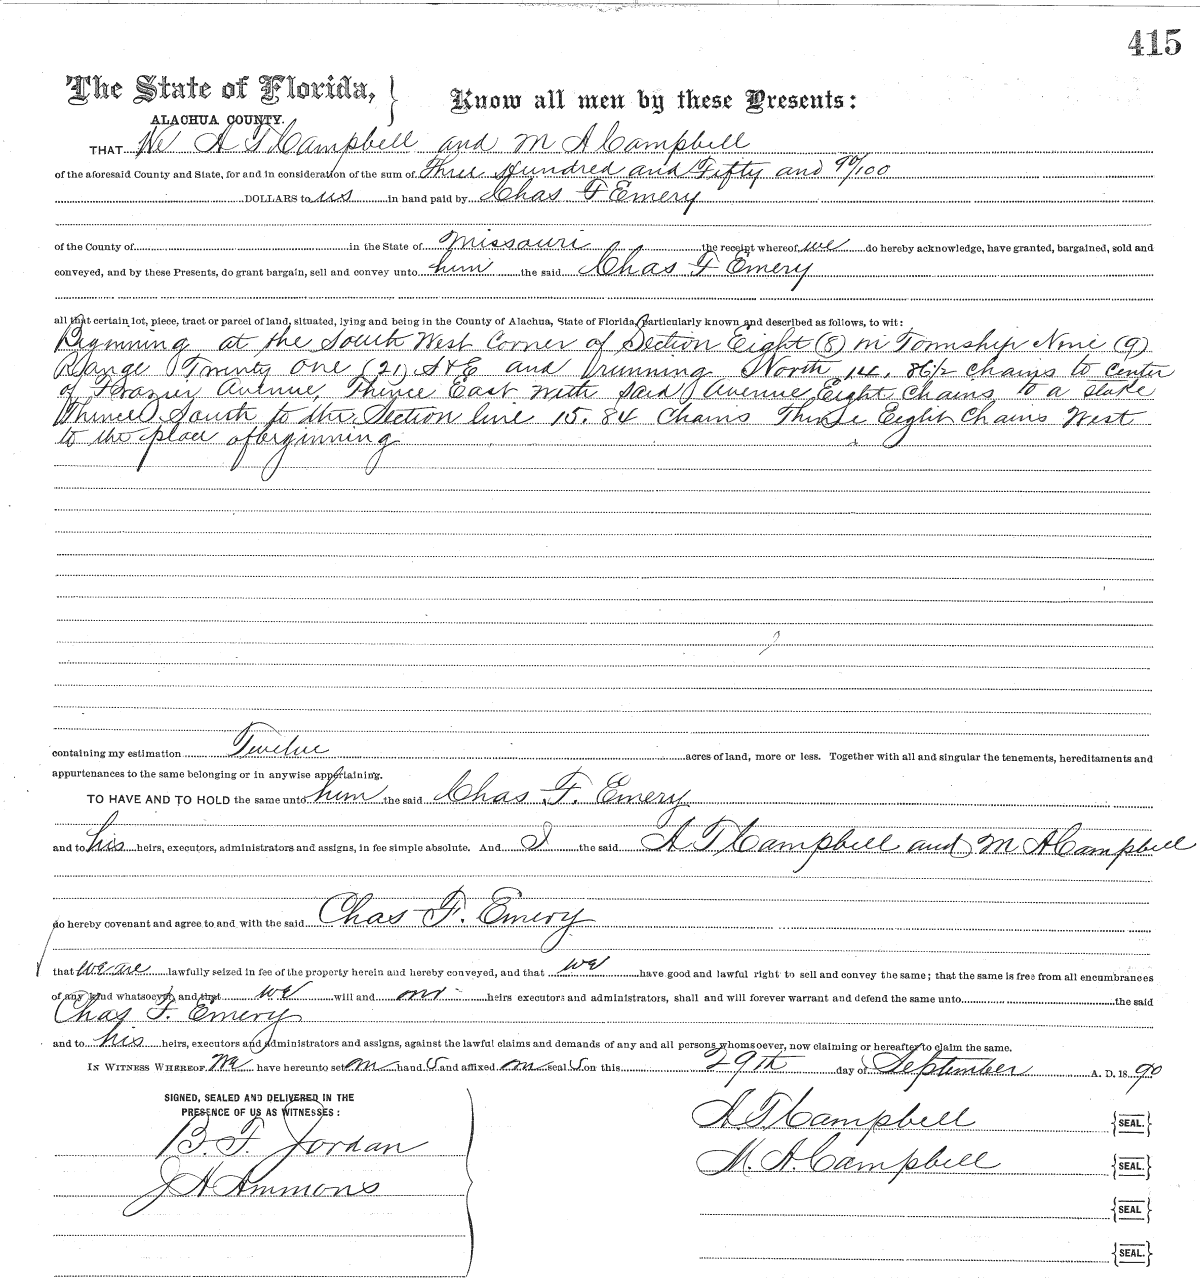 415
The State of Florida, } Know all men by these Presents:
ALACHUA COUNTY.
THAT We A T Campbell and M A Campbell
of the aforesaid County and State, for and in consideration of the sum of Three Hundred and Fifty and 90/100
DOLLARS to us in hand paid by Chas F Emery
of the County of in the State of Missouri the receipt whereof we do hereby acknowledge, have granted, bargained, sold and
conveyed, and by these Presents, do grant bargain, sell and convey unto him the said Chas F Emery
all that certain lot, piece, tract or parcel of land, situated, lying and being in the County of Alachua, State of Florida, particularly known and described as follows, to wit:
Biginning at the South West Corner of Section Eight (8) in Township Nine (9)
Range Twenty One (21) S & E and running North 14. 86½ chains to center
of Frazier Avenue, Thence East with said Avenue Eight Chains to a stake
Thence South to the Section line 15. 84 Chains Thence Eight Chains West
to the place of beginning
containing my estimation Twelve acres of land, more or less. Together with all and singular the tenements, hereditaments and
appurtenances to the same belonging or in anywise appertaining.
TO HAVE AND TO HOLD the same unto him the said Chas F. Emery
and to his heirs, executors, administrators and assigns, in fee simple absolute. And I the said A T Campbell and M A Campbell
do hereby covenant and agree to and with the said Chas F. Emery
that we are lawfully seized in fee of the property herein and hereby conveyed, and that we have good and lawful right to sell and convey the same; that the same is free from all encumbrances
of any kind whatsoever, and that we will and our heirs executors and administrators, shall and will forever warrant and defend the same unto the said
Chas F. Emery
and to his heirs, executors and administrators and assigns, against the lawful claims and demands of any and all persons whomsoever, now claiming or hereafter to claim the same.
IN WITNESS WHEREOF We have hereunto set our hand s and affixed our seal s on this 29th day of September A. D. 18 90
SIGNED, SEALED AND DELIVERED IN THE
PRESENCE OF US AS WITNESSES:
A. T. Campbell {SEAL.}
B. F. Jordan
M. A. Campbell {SEAL.}
J H Ammons
{SEAL}
{SEAL.}